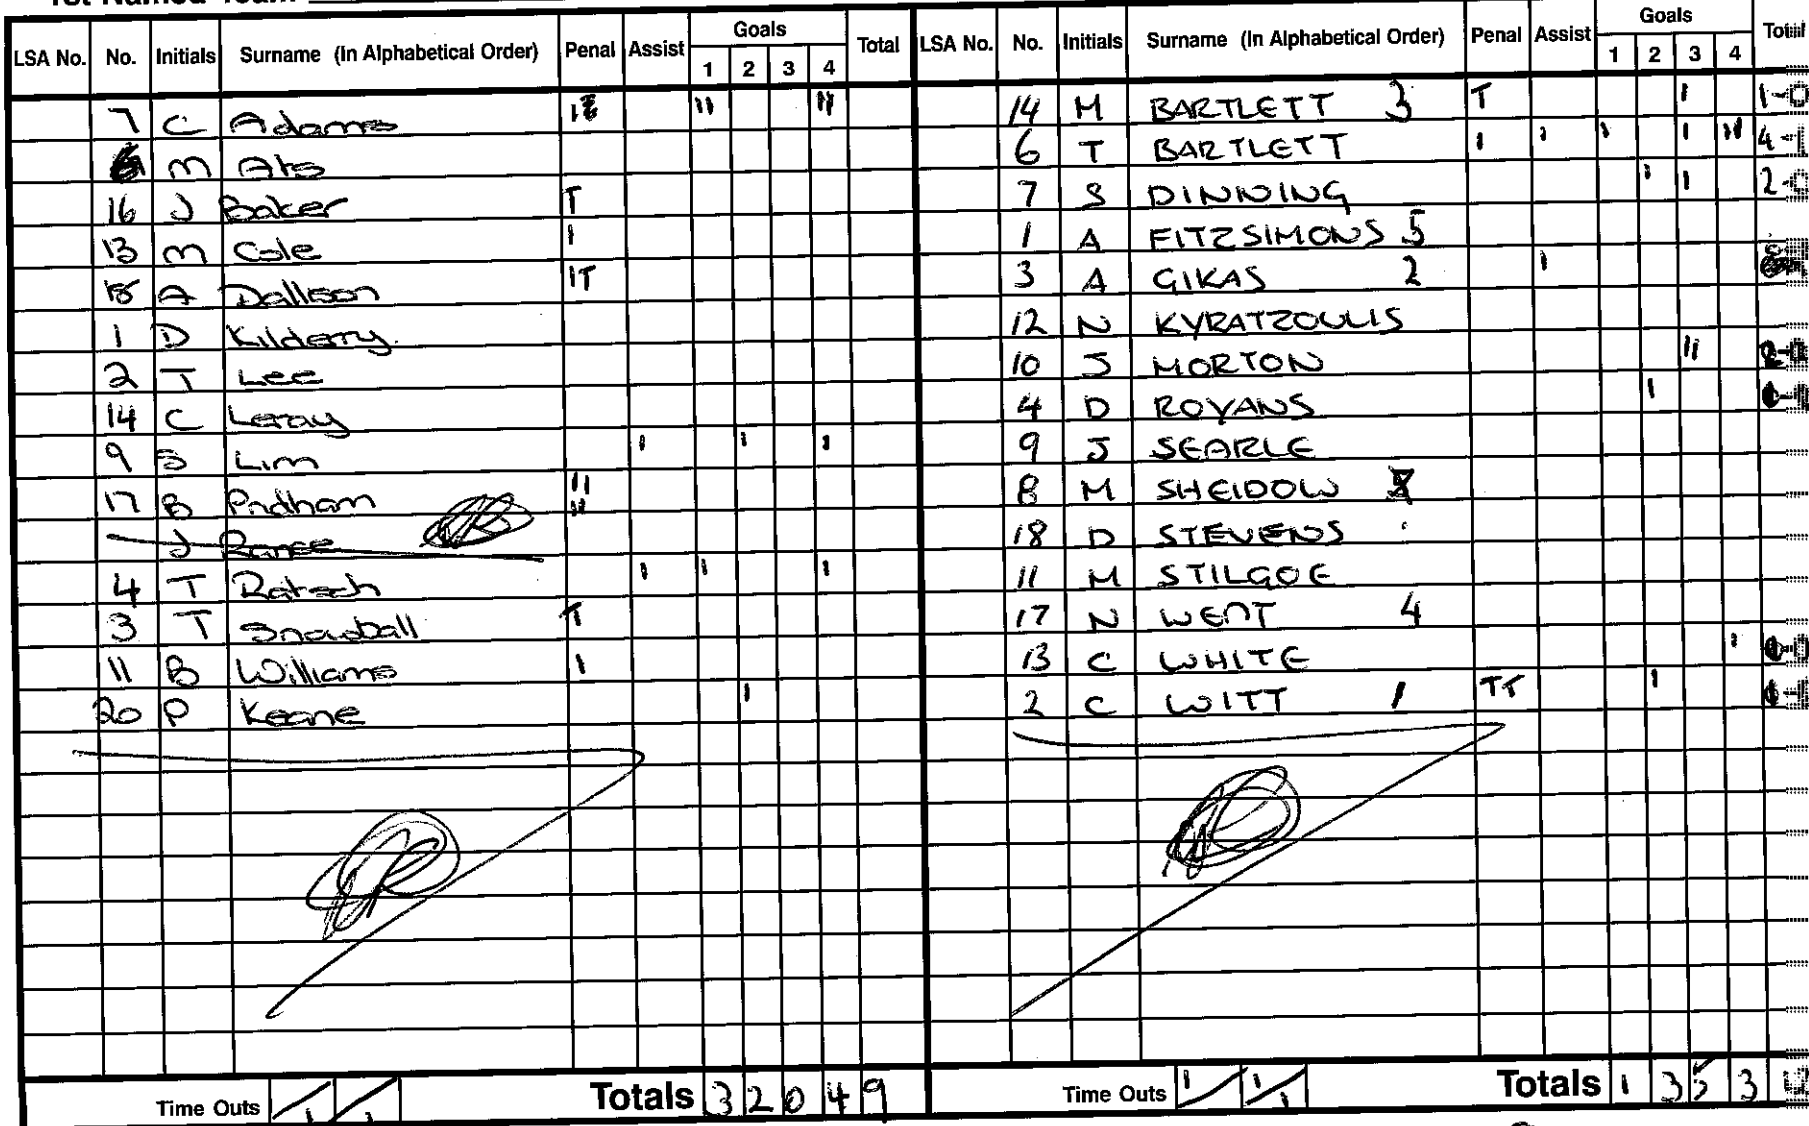 1st Named Team
LSA No. No. Initials Surname (In Alphabetical Order) Penal Assist Goals 1 2 3 4 Total
7 C Adams 11 11
M Ato
16 J Baker T
13 M Cole 1
18 A Dallson 1T
1 D Kilderry
2 T Lee
14 C Leroy
9 S Lim 1 1 1
17 B Pridham 11 11
J Rance
4 T Ratsch 1 1 1
3 T Snowball T
11 B Williams 1
20 P Keane 1
Time Outs 1 1 Totals 3 2 0 4 9
LSA No. No. Initials Surname (In Alphabetical Order) Penal Assist Goals 1 2 3 4 Total
14 M BARTLETT 3 T 1 1-0
6 T BARTLETT 1 1 1 1 11 4-1
7 S DINNING 1 1 2-0
1 A FITZSIMONS 5
3 A GIKAS 2 1
12 N KYRATZOULIS
10 J MORTON 11
4 D ROVANS 1
9 J SEARLE
8 M SHEIDOW
18 D STEVENS
11 M STILGOE
17 N WENT 4
13 C WHITE 1
2 C WITT 1 TT 1
Time Outs 1 1 1 Totals 1 3 5 3